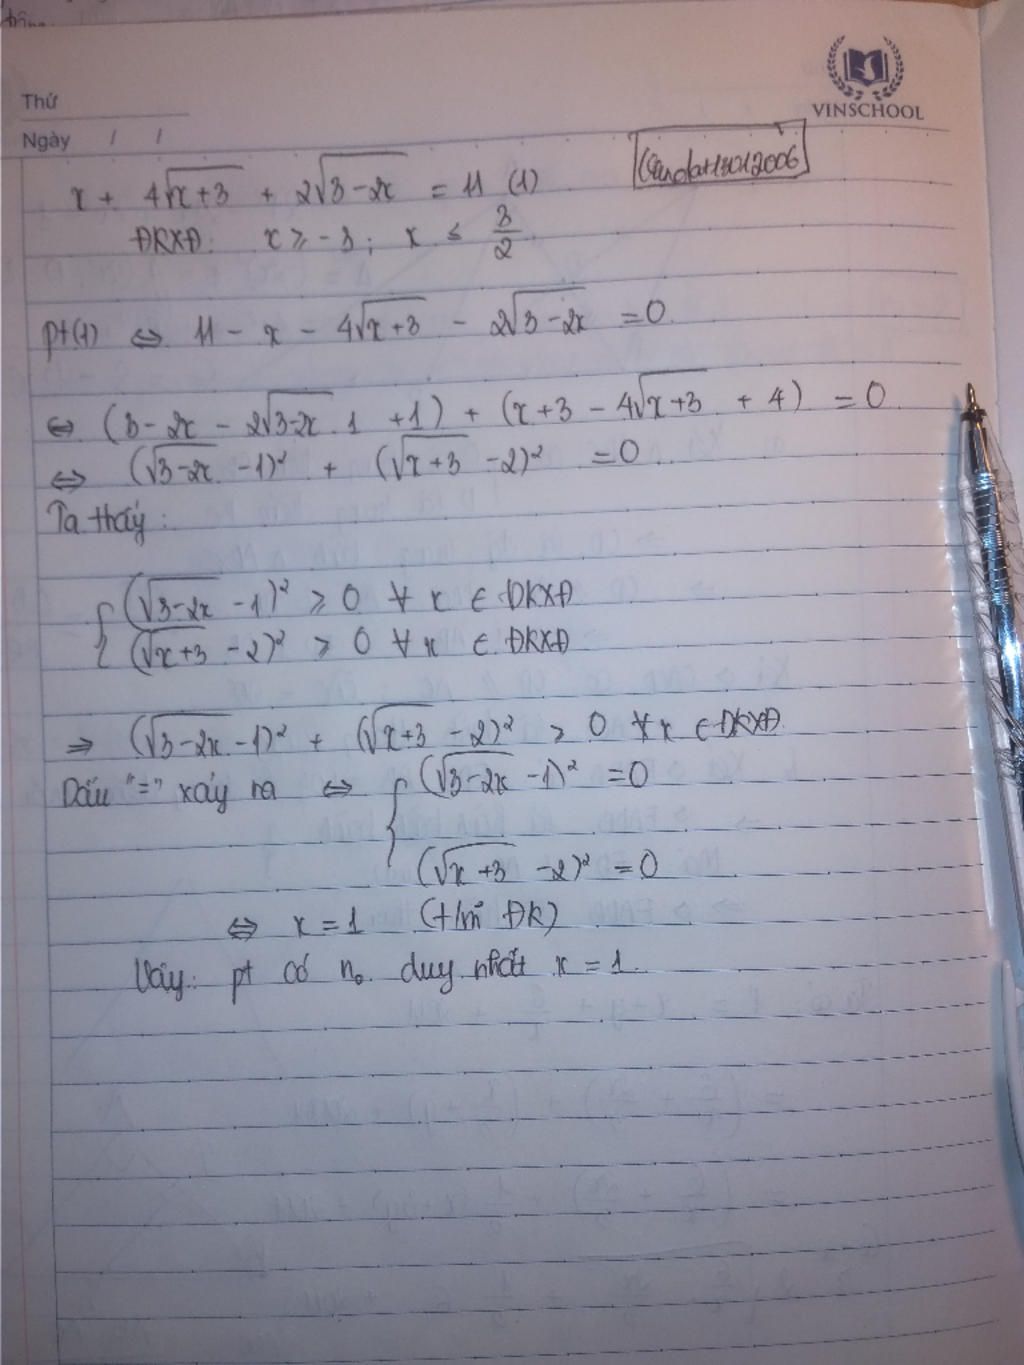 VINSCHOOL
Thứ
Ngày / /
x + 4√(x+3) + 2√(3-2x) = 11 (1)
ĐKXĐ: x ≥ -3; x ≤ 3/2
pt(1) ⇔ 11 - x - 4√(x+3) - 2√(3-2x) = 0
⇔ (3-2x - 2√(3-2x).1 +1) + (x+3 - 4√(x+3) + 4) = 0
⇔ (√(3-2x) -1)² + (√(x+3) -2)² = 0
Ta thấy:
{ (√(3-2x) -1)² ≥ 0 ∀ x ∈ ĐKXĐ
(√(x+3) -2)² ≥ 0 ∀ x ∈ ĐKXĐ
⇒ (√(3-2x) -1)² + (√(x+3) -2)² ≥ 0 ∀x ∈ ĐKXĐ
Dấu "=" xảy ra ⇔ { (√(3-2x) -1)² = 0
(√(x+3) -2)² = 0
⇔ x = 1 (t/m ĐK)
Vậy: pt có n₀ duy nhất x = 1.